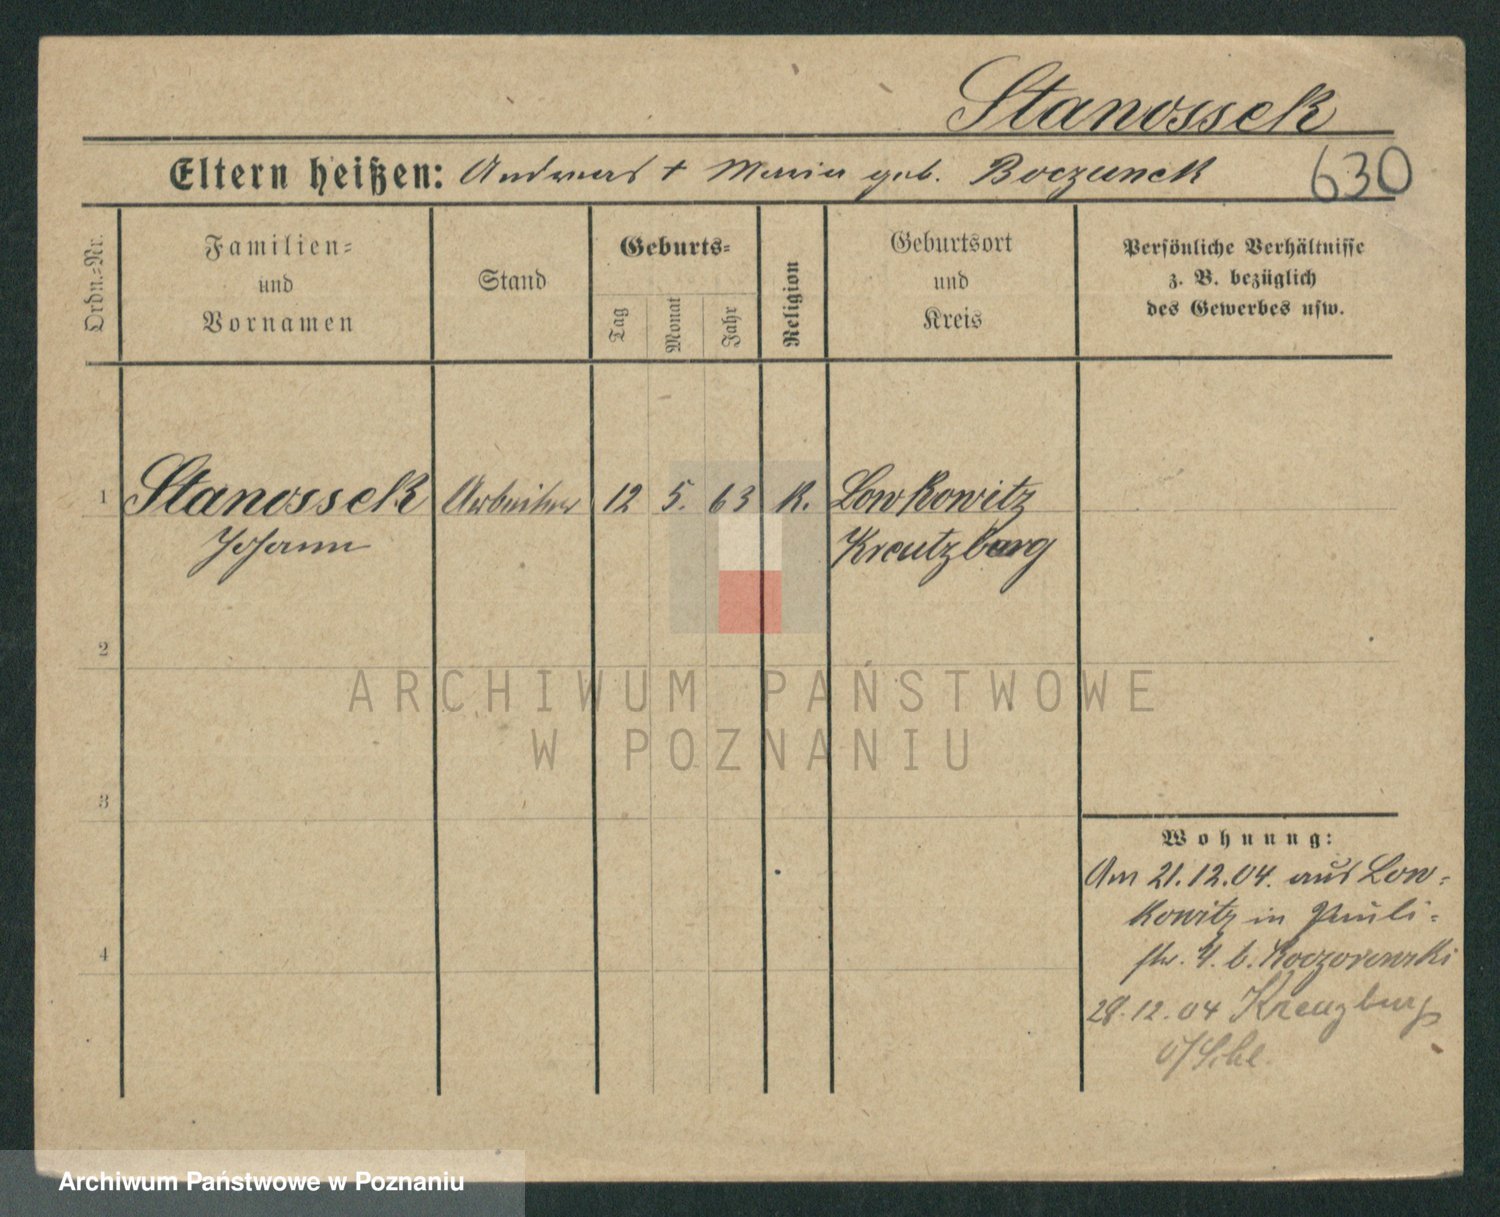 Stanossek
Eltern heißen: Andreas + Maria geb. Boczunek
630
Ordn.=Nr.
Familien=
und
Vornamen
Stand
Geburts=
Tag
Monat
Jahr
Religion
Geburtsort
und
Kreis
Persönliche Verhältnisse
z. B. bezüglich
des Gewerbes usw.
1 Stanossek Arbeiter 12 5. 63 K. Lowkowitz
Johann Kreutzburg
2
ARCHIWUM PAŃSTWOWE
W POZNANIU
3
Wohnung:
Am 21.12.04. aus Low=
kowitz in Pauli=
4
str. 4. b. Koczorowski
28.12.04 Kreuzburg
O/Schl.
Archiwum Państwowe w Poznaniu